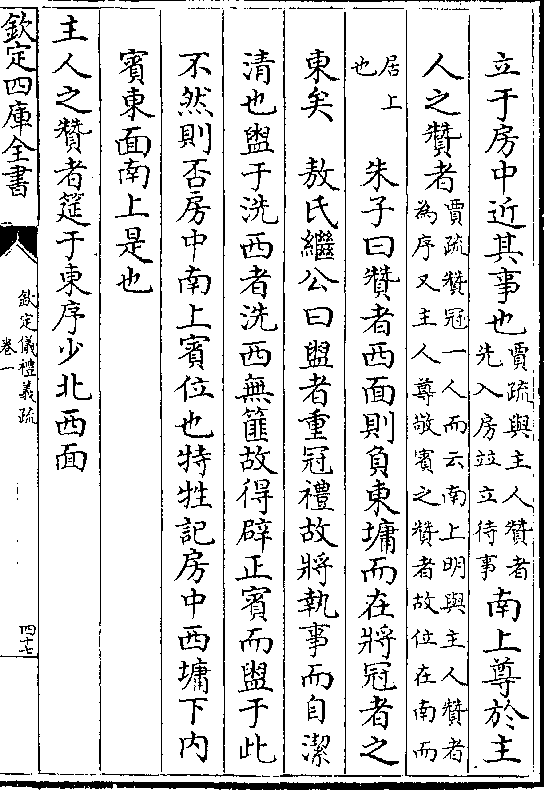 立于房中近其事也賈疏與主人贊者
先入房竝立待事南上尊於主
人之贊者賈疏贊冠一人而云南上明與主人贊者
為序又主人尊敬賓之贊者故位在南而
居上
也　朱子曰贊者西面則負東墉而在將冠者之
東矣　敖氏繼公曰盥者重冠禮故將執事而自潔
清也盥于洗西者洗西無篚故得辟正賓而盥于此
不然則否房中南上賓位也特牲記房中西墉下内
賓東面南上是也
主人之贊者筵于東序少北西面
欽定四庫全書
欽定儀禮義疏
卷一
四七